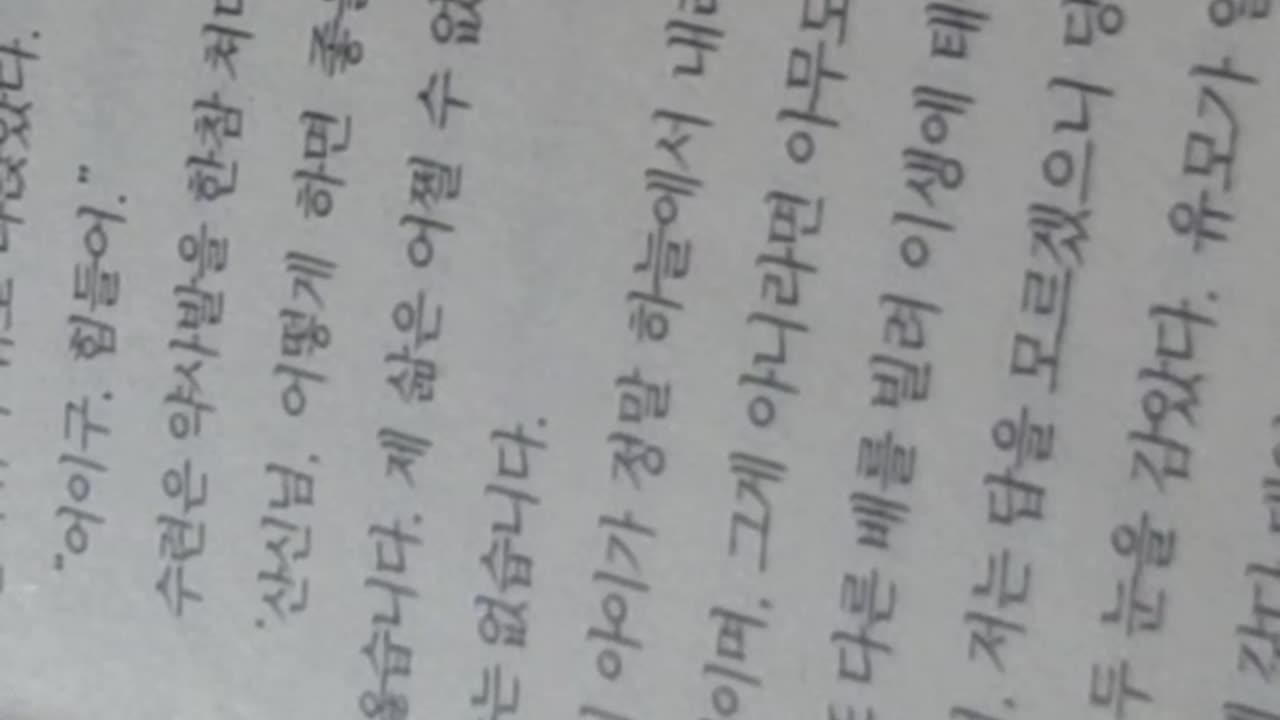 앉았다.
"어이구, 힘들어."
수련은 약사발을 한참
'산신님, 어떻게 하면
옳습니다. 제 삶은 어쩔 수
는 없습니다.
아이가 정말 하늘에서
이며, 그게 아니라면 아무도
다른 배를 빌려 이생에
저는 답을 모르겠으니
두 눈을 감았다. 유모가